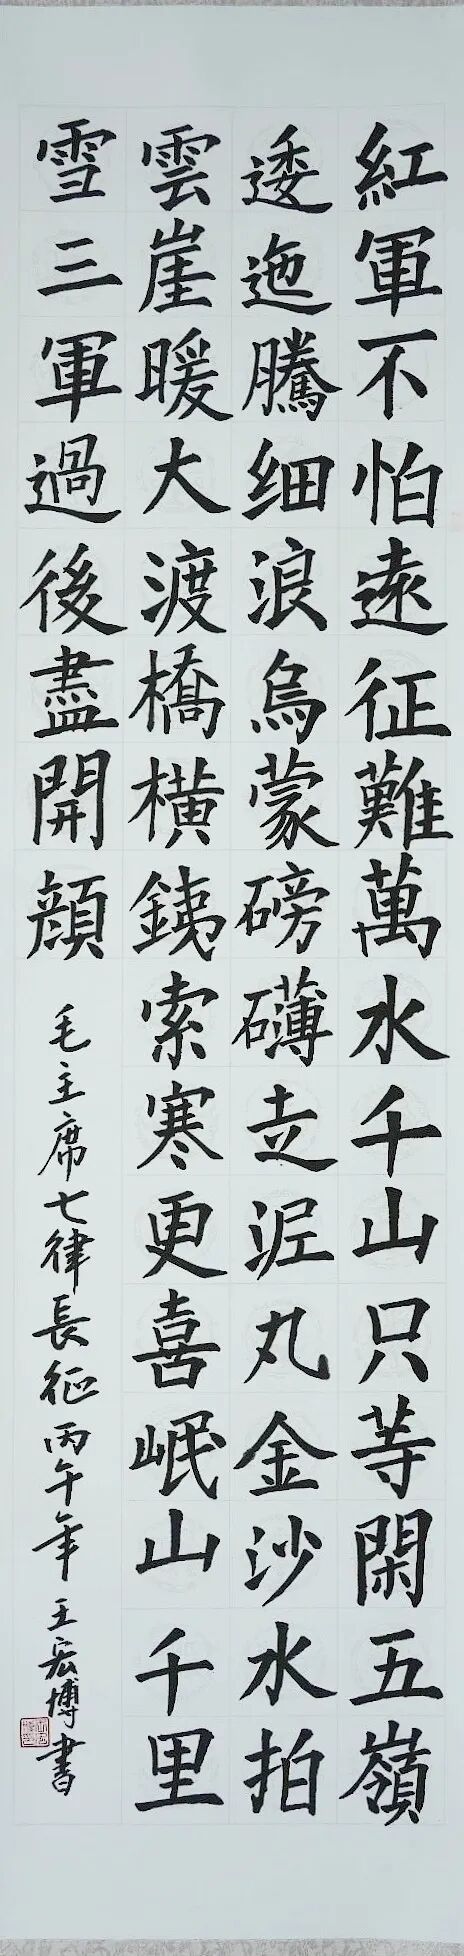 紅軍不怕遠征難萬水千山只等閑五嶺
逶迤騰细浪烏蒙磅礴走泥丸金沙水拍
雲崖暖大渡橋横銕索寒更喜岷山千里
雪三軍過後盡開顔
毛主席七律長征丙午年王宏博書